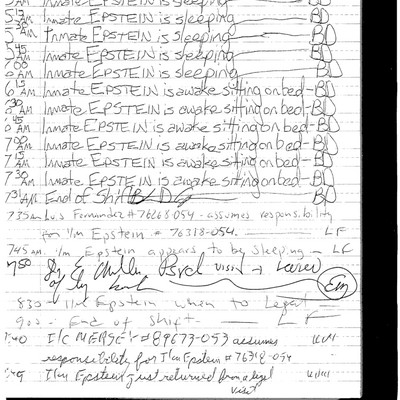 Inmate EPSTEIN is sleeping
5 15 AM Inmate EPSTEIN is sleeping BD
5 30 AM Inmate EPSTEIN is sleeping BD
5 45 AM Inmate EPSTEIN is sleeping BD
6 00 AM Inmate EPSTEIN is sleeping BD
15 AM Inmate EPSTEIN is awake sitting on bed - BD
30 AM Inmate EPSTEIN is awake sitting on bed - BD
45 AM Inmate EPSTEIN is awake sitting on bed - BD
7 00 AM Inmate EPSTEIN is awake sitting on bed - BD
7 15 AM Inmate EPSTEIN is awake sitting on bed - BD
7 30 AM Inmate EPSTEIN is awake sitting on bed - BD
7 31 AM End of Shift
735am Luis Fernandez # 76268-054 - assumes responsibility
for I/m Epstein # 76318-054. LF
745am. I/m Epstein appears to be sleeping - LF
750 Psych visit
830 - I/m Epstein when to Legal
900 - End of Shift. - LF
I/C MERSEY # 89673-053 assumes
responsibility for I/m Epstein # 76318-054
I/m Epstein just returned from a legal
visit